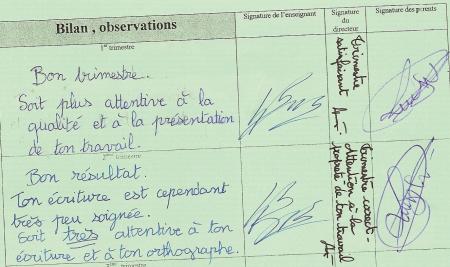 Bilan, observations
Signature de l'enseignant
Signature
du
directeur
Signature des parents
1er trimestre
Bon trimestre.
Soit plus attentive à la
qualité et à la présentation
de ton travail.
Trimestre
satisfaisant
2ème trimestre
Bon résultat.
Ton écriture est cependant
très peu soignée.
Soit très attentive à ton
écriture et à ton orthographe.
Trimestre correct.
Attention à la
propreté de ton travail